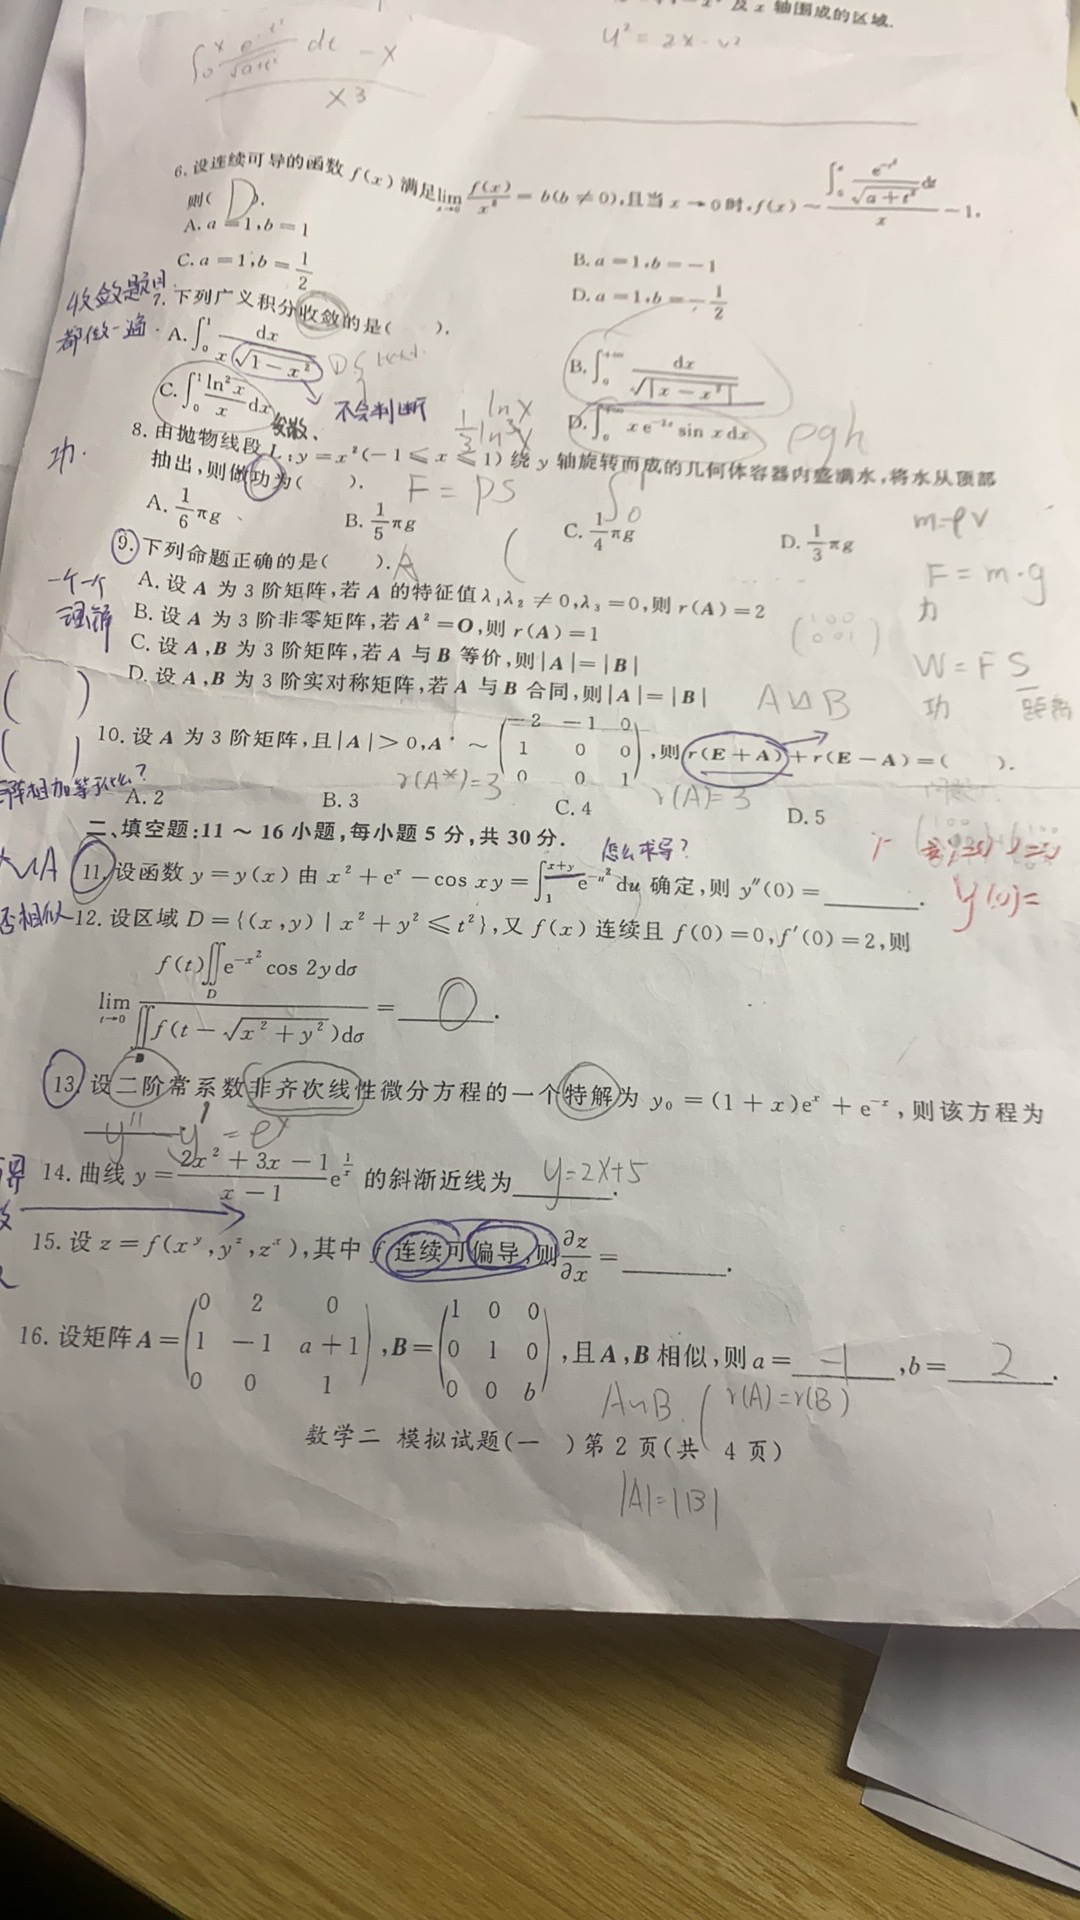 及 x 轴围成的区域.
y² = 2x - x²
∫₀ˣ e^{-t²}/√(a+t²) dt - x
x³
6. 设连续可导的函数 f(x) 满足 lim_{x→0} f(x)/x² = b(b ≠ 0), 且当 x → 0 时, f(x) ~ (∫₀ˣ e^{-t²}/√(a+t²) dt)/x - 1,
则( D ).
A. a = 1, b = 1
B. a = 1, b = -1
C. a = 1, b = 1/2
D. a = 1, b = -1/2
收敛题目
都做一遍.
7. 下列广义积分收敛的是( ).
A. ∫₀¹ dx/(x√(1-x²))
B. ∫₀^{+∞} dx/√|x-x²|
C. ∫₀¹ ln²x/x dx
发散.
不会判断
lnx
1/3 ln³x
D. ∫₀^{+∞} x e^{-2x} sin x dx
ρgh
功.
8. 由抛物线段 L: y = x²(-1 ≤ x ≤ 1) 绕 y 轴旋转而成的几何体容器内盛满水, 将水从顶部
抽出, 则做功为( ).
F = PS
∫₀¹
m=ρV
A. 1/6 πg
B. 1/5 πg
C. 1/4 πg
D. 1/3 πg
F = m·g
力
W = F S
功 距离
9. 下列命题正确的是( ). A
一个一个
理解
A. 设 A 为 3 阶矩阵, 若 A 的特征值 λ₁λ₂ ≠ 0, λ₃ = 0, 则 r(A) = 2
B. 设 A 为 3 阶非零矩阵, 若 A² = O, 则 r(A) = 1
C. 设 A, B 为 3 阶矩阵, 若 A 与 B 等价, 则 |A| = |B|
D. 设 A, B 为 3 阶实对称矩阵, 若 A 与 B 合同, 则 |A| = |B|
10. 设 A 为 3 阶矩阵, 且 |A| > 0, A* ~ (-2 -1 0; 1 0 0; 0 0 1), 则 r(E+A) + r(E-A) = ( ).
r(A*)=3
r(A)=3
A. 2
B. 3
C. 4
D. 5
二、填空题: 11 ~ 16 小题, 每小题 5 分, 共 30 分.
怎么求导?
11. 设函数 y = y(x) 由 x² + eˣ - cos xy = ∫₁^{x+y} e^{-u²} du 确定, 则 y″(0) = ______.
y(0)=
否相似
12. 设区域 D = {(x, y) | x² + y² ≤ t²}, 又 f(x) 连续且 f(0) = 0, f′(0) = 2, 则
lim_{t→0} f(t)∬_D e^{-x²} cos 2y dσ / ∬_D f(t - √(x²+y²)) dσ = 0.
13. 设二阶常系数非齐次线性微分方程的一个特解为 y₀ = (1+x)eˣ + e⁻ˣ, 则该方程为
y″ y′ = eˣ
14. 曲线 y = (2x² + 3x - 1)/(x - 1) e^{1/x} 的斜渐近线为 y=2x+5.
15. 设 z = f(xʸ, yᶻ, zˣ), 其中 f 连续可偏导, 则 ∂z/∂x = ______.
16. 设矩阵 A = (0 2 0; 1 -1 a+1; 0 0 1), B = (1 0 0; 0 1 0; 0 0 b), 且 A, B 相似, 则 a = -1, b = 2.
A~B. r(A)=r(B)
|A|=|B|
数学二 模拟试题(一 ) 第 2 页(共 4 页)